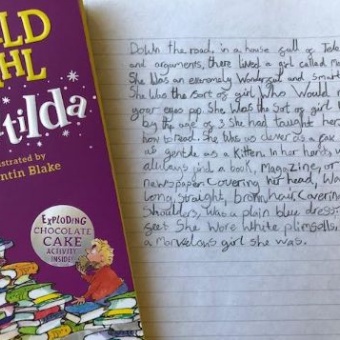 LD
HL
tilda
ustrated by
entin Blake
EXPLODING
CHOCOLATE
CAKE
ACTIVITY
INSIDE!
Down the road, in a house full of
and arguments, there lived a girl called
She was an extremely wonderful and smart
She was the sort of girl who would m
your eyes pop. She was the sort of girl
by the age of 3 she had taught her
how to read. She was as clever as a fox
as gentle as a kitten. In her hands
always find a book, magazine, or
newspaper. Covering her head, wa
long, straight, brown hair. Covering
shoulders, was a plain blue dress.
feet she wore white plimsolls
a marvelous girl she was.